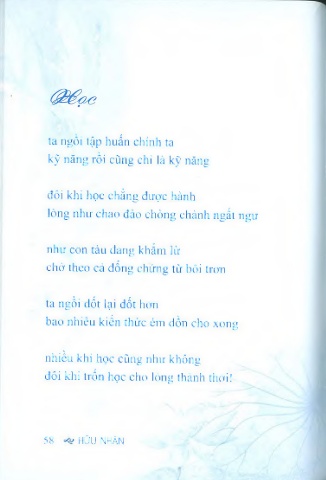 Học
ta ngồi tập huấn chính ta
kỹ năng rồi cũng chỉ là kỹ năng
đôi khi học chẳng được hành
lòng như chao đảo chòng chành ngất ngư
như con tàu đang khẩm lừ
chở theo cả đống chứng từ bôi trơn
ta ngồi dốt lại dốt hơn
bao nhiêu kiến thức ém dồn cho xong
nhiều khi học cũng như không
đôi khi trốn học cho lòng thảnh thơi!
58 HỮU NHÂN